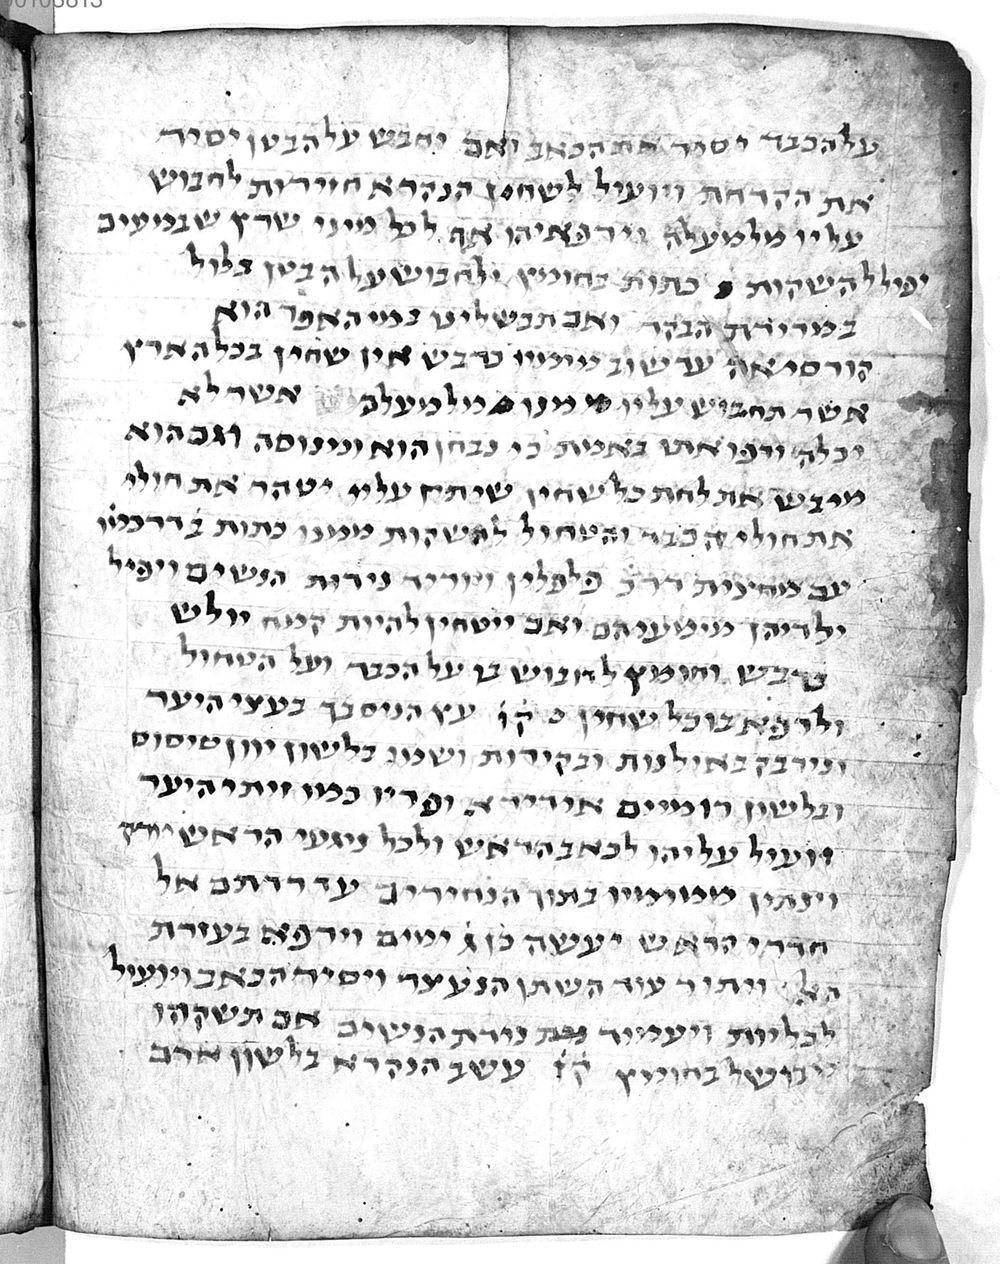 על הכבד יסיר את הכאב ואם יחבש על הבטן יסיר
את הקדחת ויועיל לשחין הנקרא חזירות לחבוש
עליו מלמעלה וירפאיהו אף לכל מיני שרץ שבמעים
יפיל להשקות כתות בחומץ ולחבוש על הבטן בלול
במרירות הבקר ואם תבשלינו במי האפר הוא
קורסיאה עד שוב מימיו כדבש אין שחין בכל הארץ
אשר תחבוש עליו ממנו מלמעלה אשר לא
יכלה ורפואתו באמת כי נבחן הוא ומנוסה וגם הוא
מיבש את לחת כל שחין שיתיז עליו יטהר את חולי
את חולי הכבד והטחול להשקות ממנו כתות בדרכמו
עם מחצית דרכ פלפלין ויוריד נידות הנשים ויפיל
ילדיהן ממעיהם ואם ייטחין להיות קמח יולש
בדבש וחומץ לחבוש בו על הכבד ועל הטחול
ולרפא בו כל שחין קו עץ הניסבך בעצי היער
ונידבק באילנות ובקירות ושמו בלשון יוון סיסוס
ובלשון רומיים אידירא ופריו כמו זיתי היער
ויועיל עליהו לכאב הראש ולכל ניגעי הראש
וינתין ממימיו בתוך הנחירים עד רדתם אל
חדרי הראש יעשה כן ג ימים וירפא בעזרת
האל ויתיר עוד השתן הנעצר ויסיר הכאב ויועיל
לכליות ויעמיד נידת הנשים אם תשקהו
מבושל בחומץ קז עשב הנקרא בלשון ארם